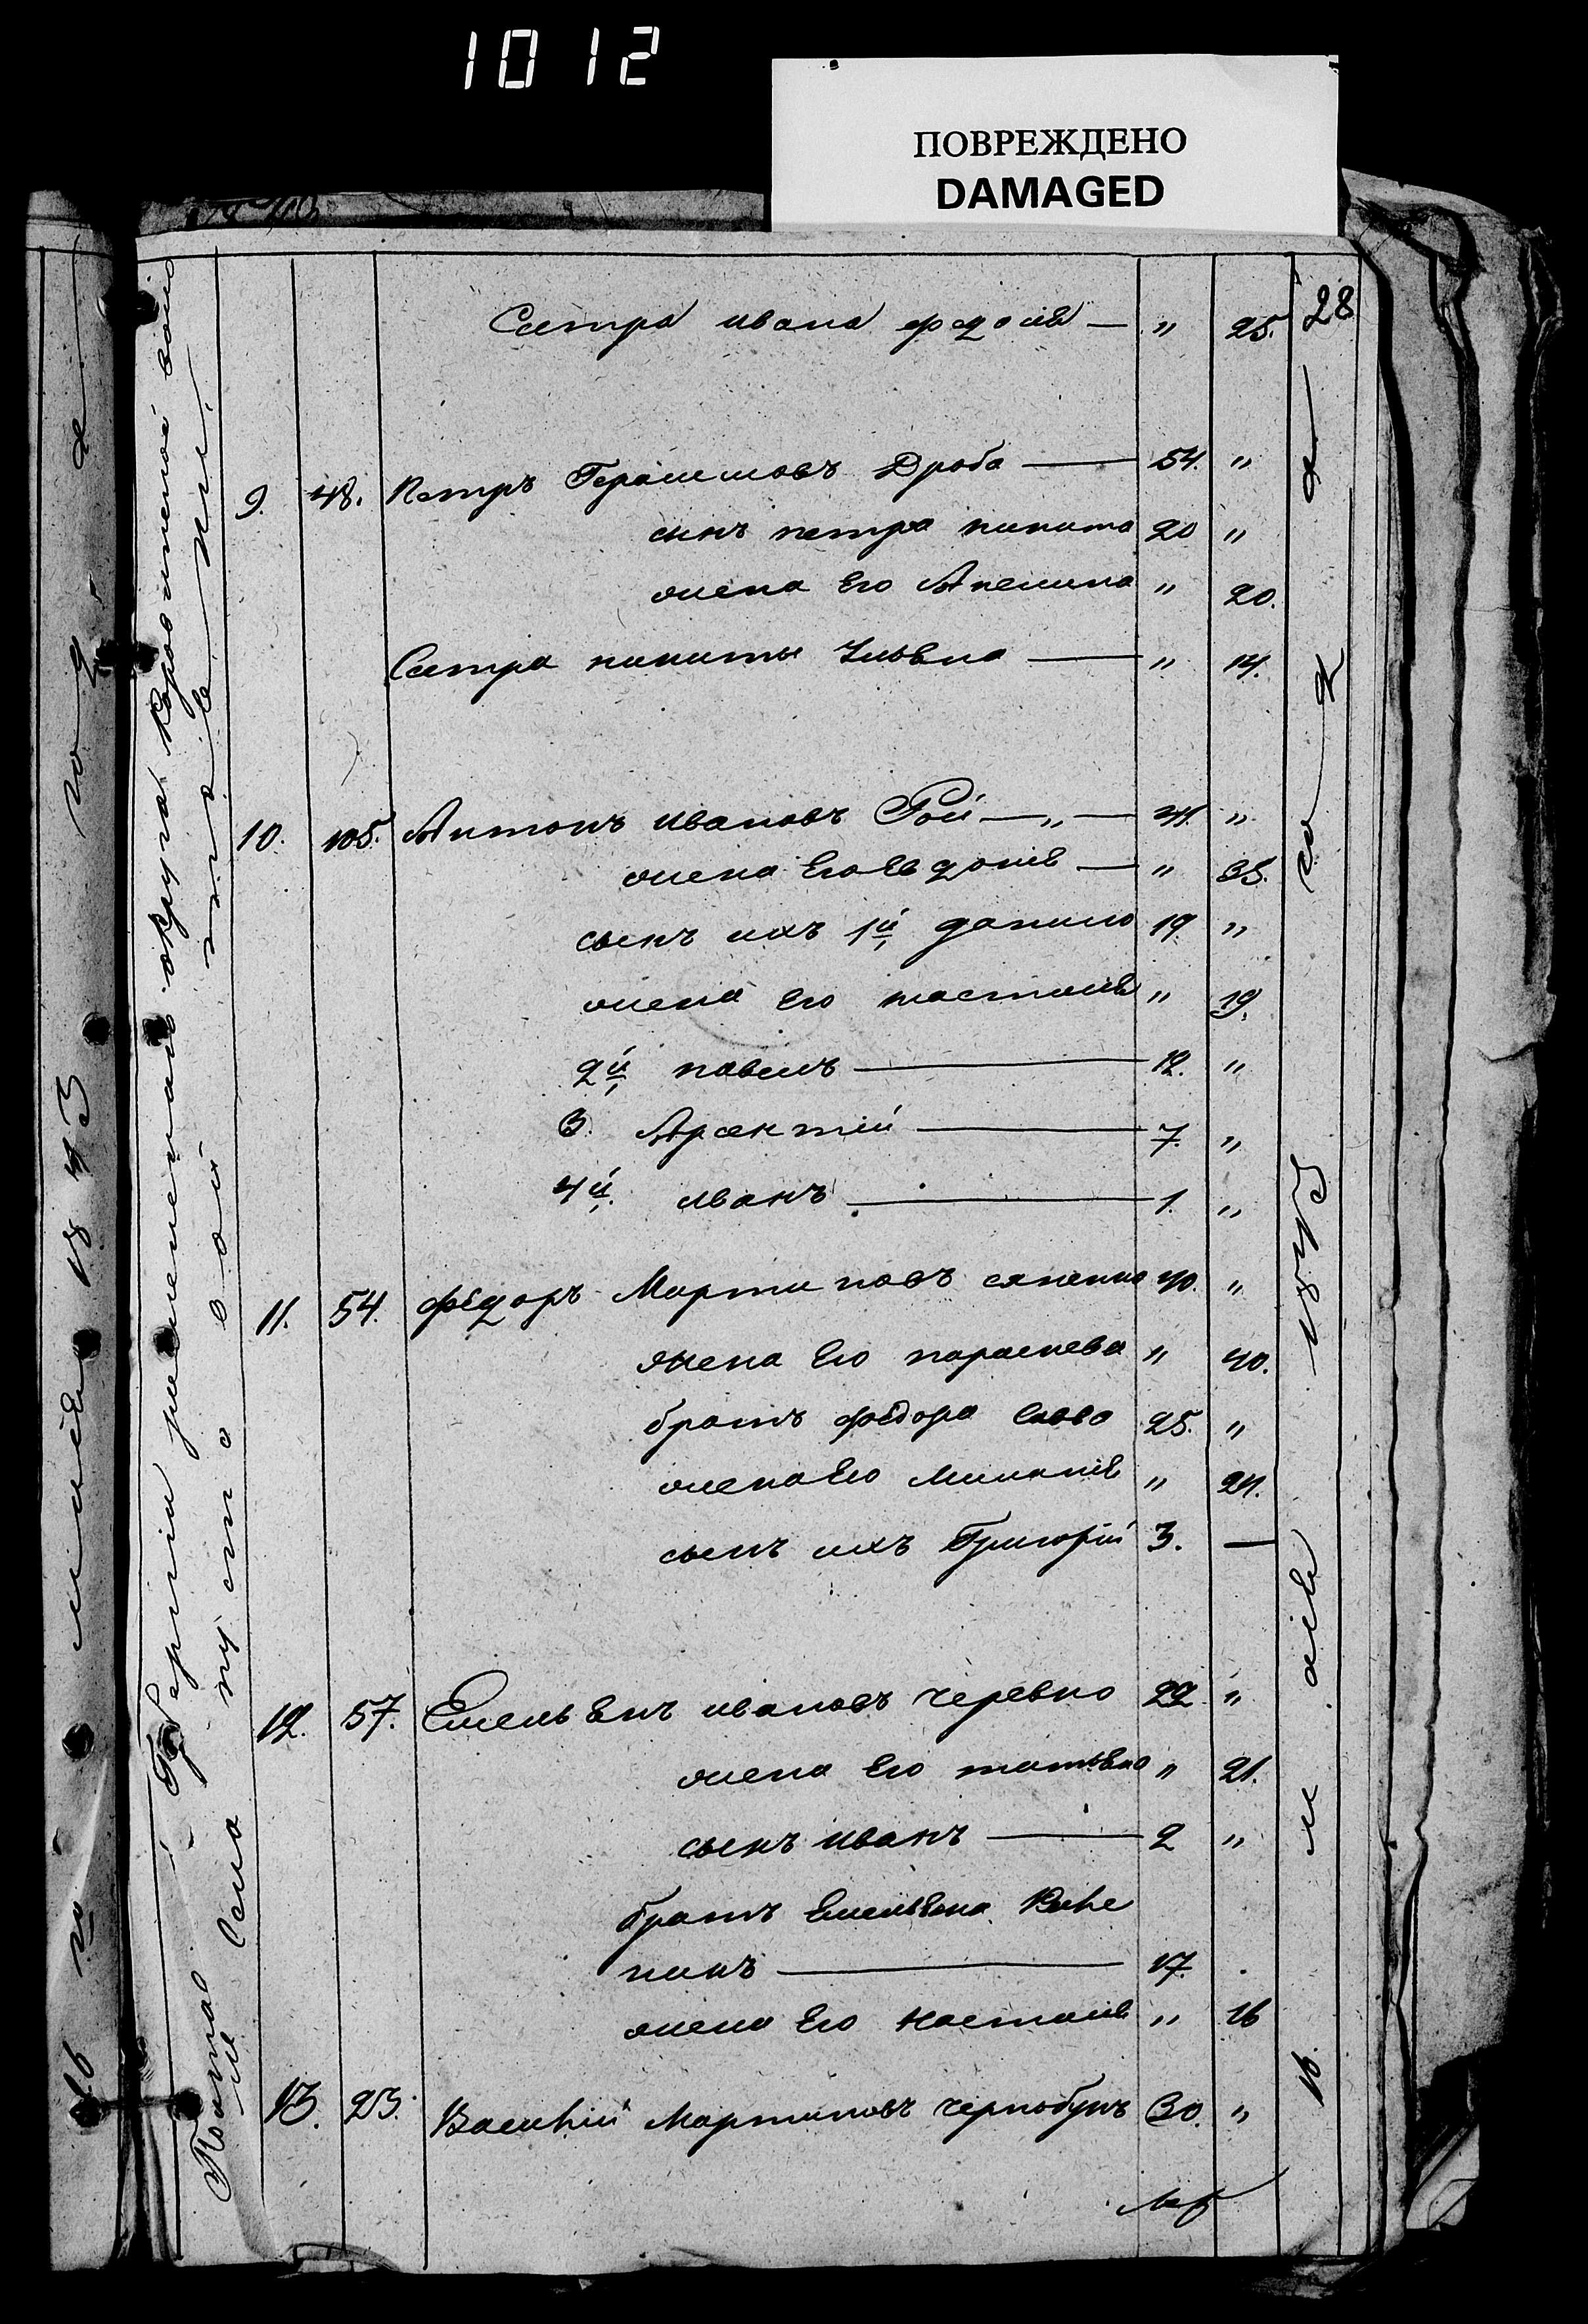 1012
ПОВРЕЖДЕНО
DAMAGED
28
Сестра ивана федосiя — " 25.
9. 48. Петръ Герасимовъ Дроба — 54. "
сынъ петра никита 20 "
жена Его Акелина " 20.
Сестра никиты Ульяна — " 14.
10. 105. Антонъ ивановъ Рой — " — 41. "
жена Его Евдокiя — " 35.
сынъ ихъ 1й данило 19. "
жена Его настасiя " 19.
2й павелъ — 12. "
3. Арсентiй — 7. "
4й. иванъ — 1. "
11. 54. федоръ Мартиновъ 40. "
жена Его параскева " 40.
братъ федора Савва 25. "
жена Его Миланiя " 24.
сынъ ихъ Григорiй 3. —
12. 57. Емельянъ ивановъ черевко 22 "
жена Его татьяна " 21.
сынъ иванъ — 2 "
братъ Емельяна
— 17.
жена Его настасiя " 16
13. 23. Василiй Мартиновъ чернобукъ 30. "
округа
Села
16 маiя 1843 года
16 го 1843 года